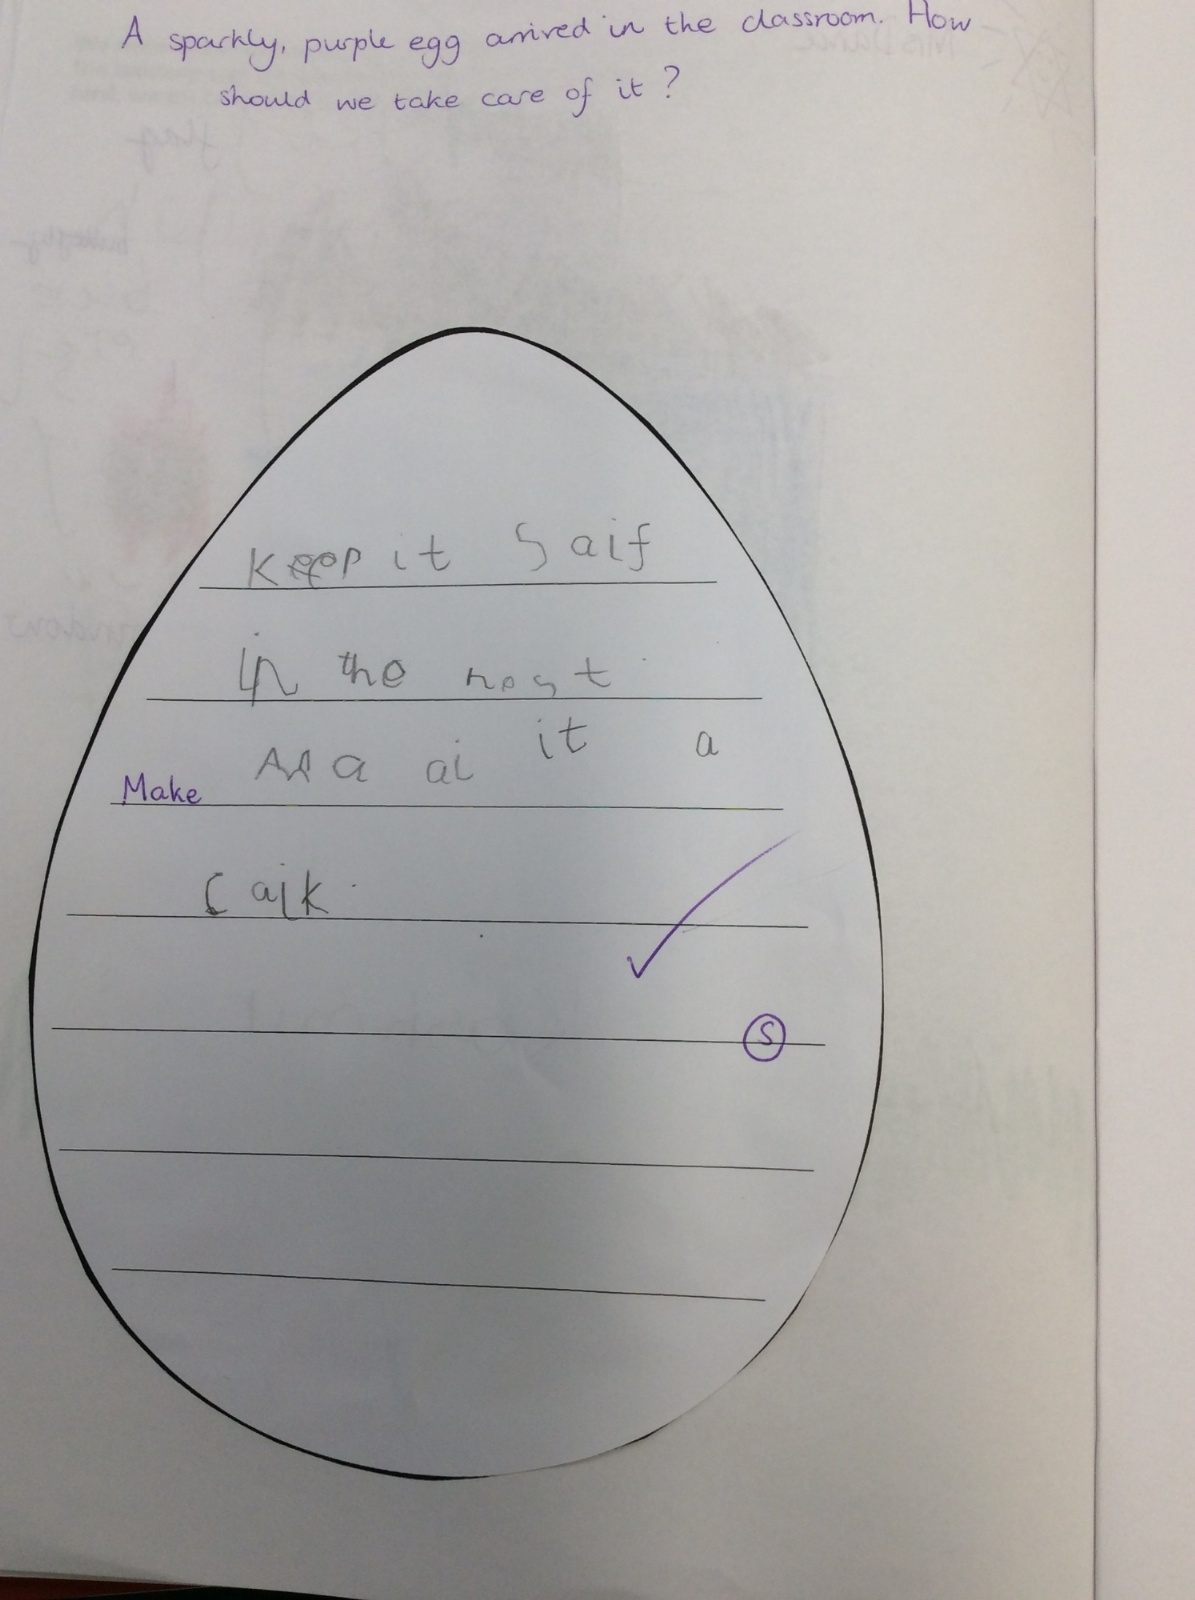 A sparkly, purple egg arrived in the classroom. How
should we take care of it ?
Keep it saif
in the nest
Ma ai it a
Make
caik.
S